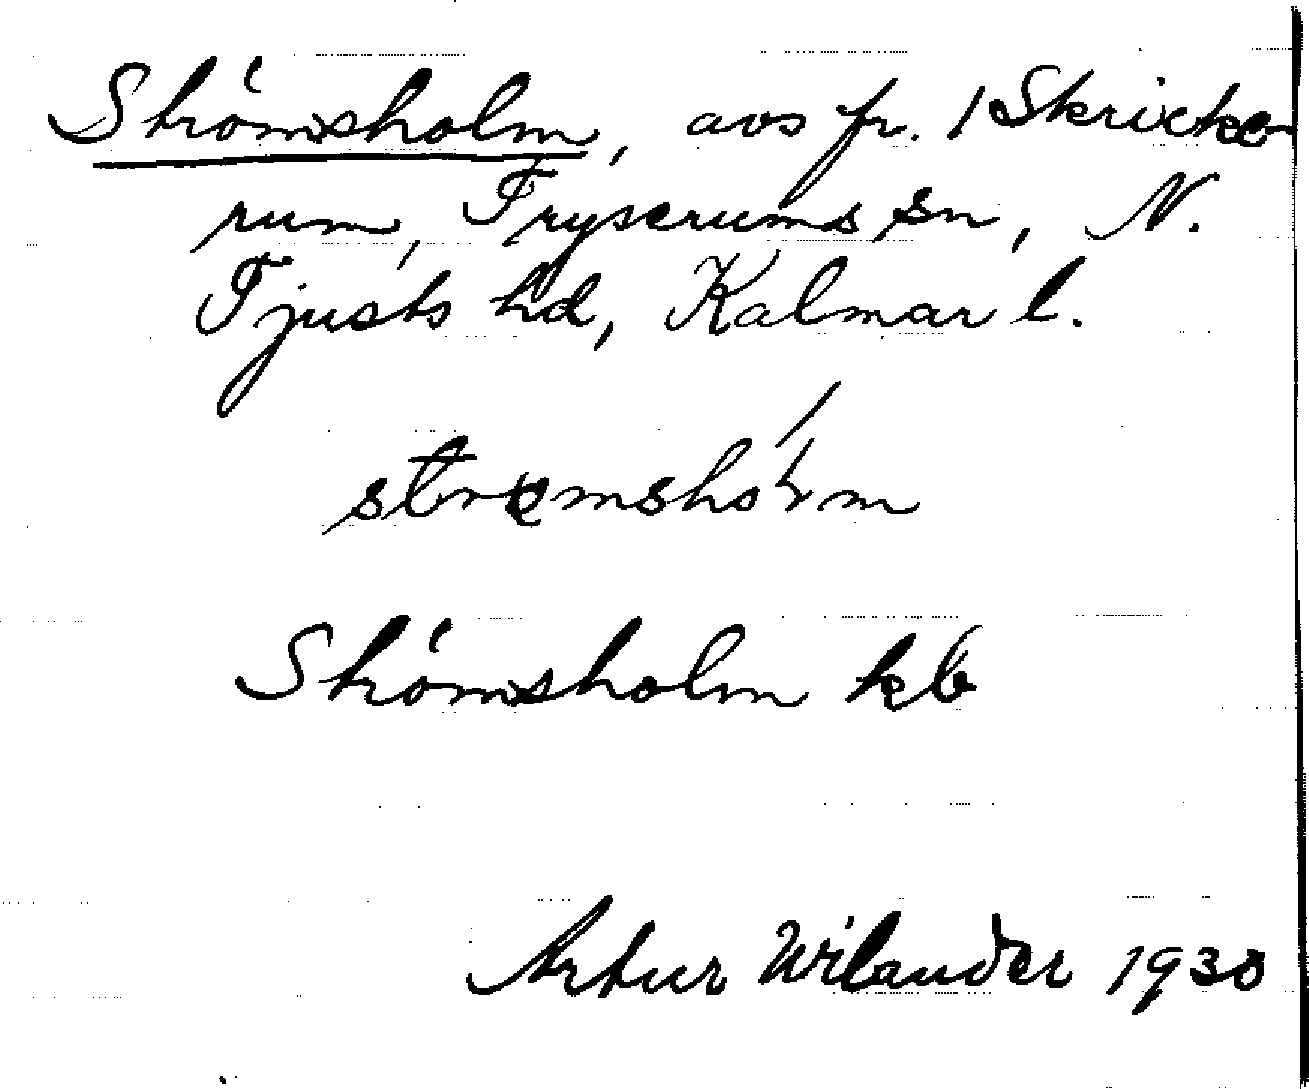 Strömsholm, avs fr. 1 Skricke
rum, Fryserums sn, N.
Tjusts hd, Kalmar l.
Strömsholm kb
Artur Wilander 1930